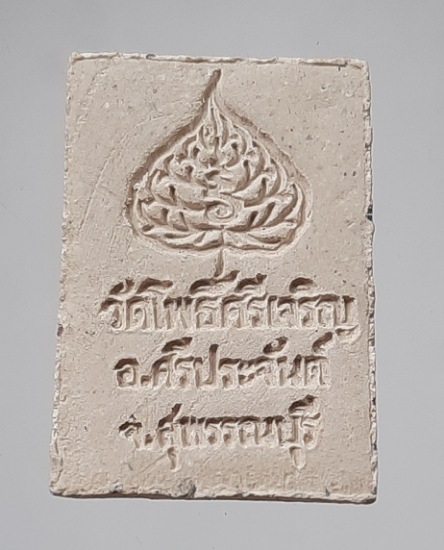 วัดโพธิ์ศรีเจริญ
อ.ศรีประจันต์
จ.สุพรรณบุรี